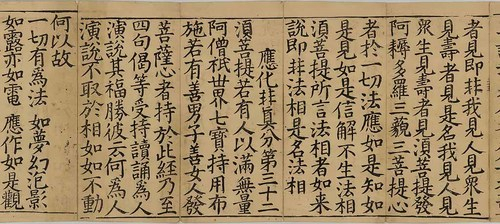 者見即非我見人見眾生
見壽者見是名我見人見
眾生見壽者見須菩提發
阿耨多羅三藐三菩提心
者於一切法應如是知如
是見如是信解不生法相
須菩提所言法相者如來
說即非法相是名法相
應化非真分第三十二
須菩提若有人以滿無量
阿僧祇世界七寶持用布
施若有善男子善女人發
菩薩心者持於此經乃至
四句偈等受持讀誦為人
演說其福勝彼云何為人
演說不取於相如如不動
何以故
一切有為法 如夢幻泡影
如露亦如電 應作如是觀